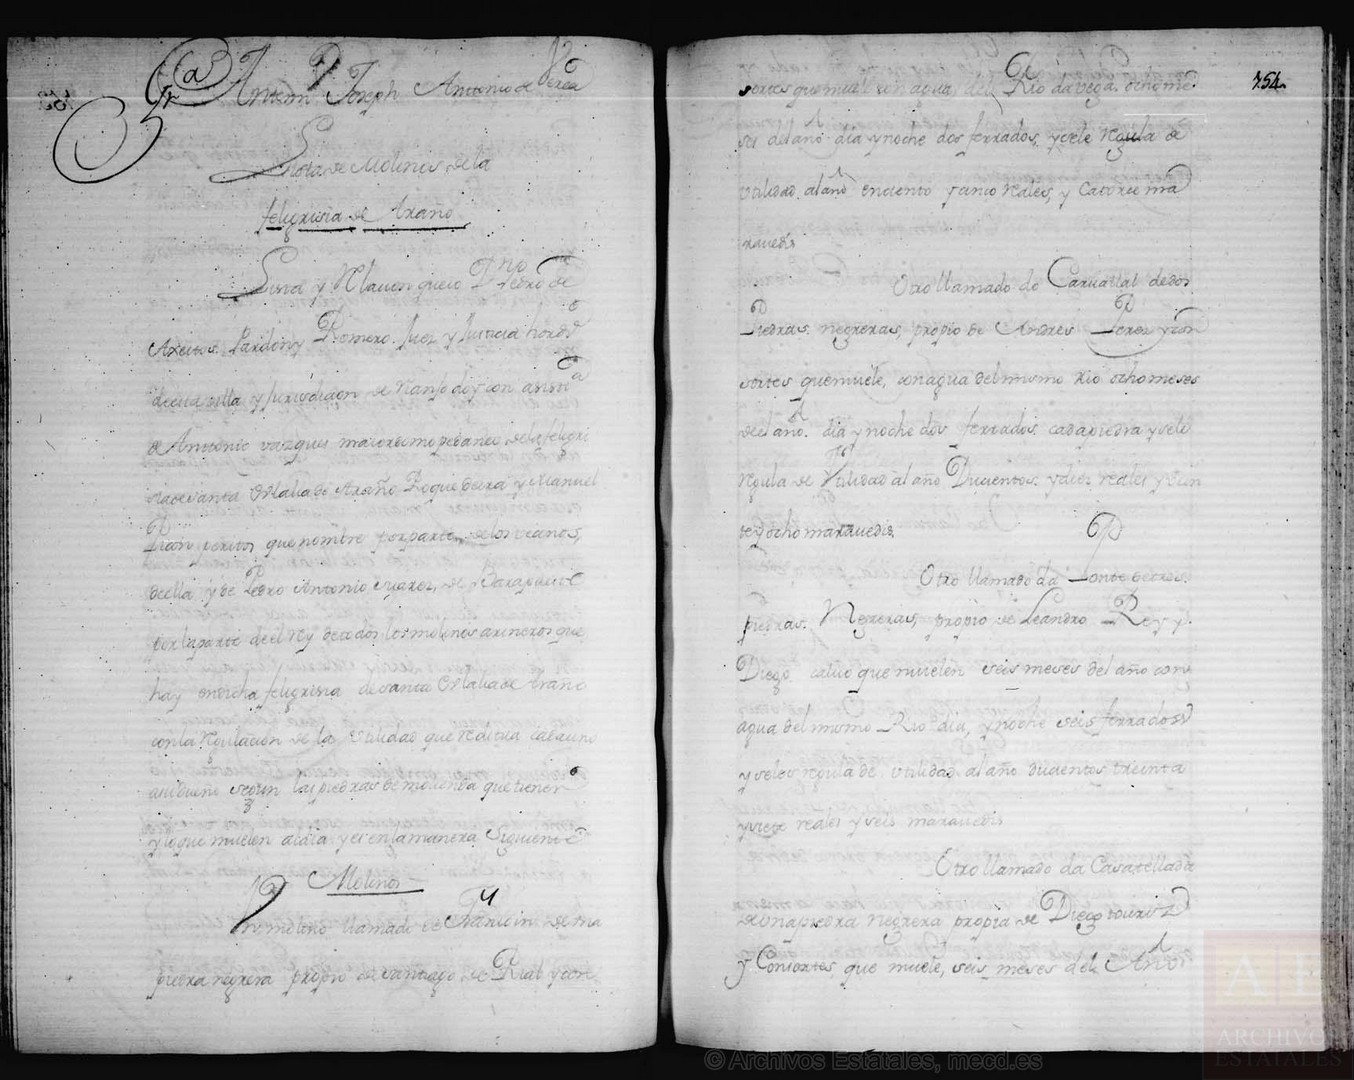 Antem Joseph Antonio de Perea
Nota de Molinos de la
feligrisia de Araño
Lista y Relacion que io Dn Pedro de
Axeitos Pardo y Romero Juez y Justicia hord
de esta villa y Jurisdicion de Rianjo doy con asiste
de Antonio vazquez maiordomo pedaneo de la feligri
sia de santa Olalia de Araño Roque deira y Manuel
Pian peritos que nombre por parte de los vecinos
de ella y de Pedro Antonio suarez, de
por la parte de el Rey de todos los molinos arineros que
hay en dicha feligrisia de santa Olalia de Araño
con la regulacion de la vtilidad que reditua cada uno
a su dueño segun las piedras de molienda que tienen
y lo que muelen a cada y es en la manera siguiente
Molinos
Vn molino llamado de de vna
piedra negrera propio de santiago de Rial y con
754.
sortes que muele con agua del Rio da vega ocho me
ses del año dia y noche dos ferrados, y se le regula de
vtilidad al año en ciento y cinco reales, y catorce ma
ravedis
Otro llamado do Carvallal de dos
Piedras negreras, propio de Andres Perez y con
sortes que muele, con agua del mismo Rio ocho meses
de el año dia y noche dos ferrados cada piedra y se le
regula de vtilidad al año Ducientos y diez reales y vein
te y ocho maravedis.
Otro llamado da Ponte de dos
piedras Negreras, propio de Leandro Rey y
Diego calvo que muelen seis meses del año con
agua del mismo Rio dia, y noche seis ferrados
y se les regula de vtilidad al año ducientos treinta
y siete reales y seis maravedis
Otro llamado da Casatellada
de una piedra negrera propia de Diego touriz
y Consortes, que muele, seis meses del Año
© Archivos Estatales, mecd.es
AE
ARCHIVOS
ESTATALES